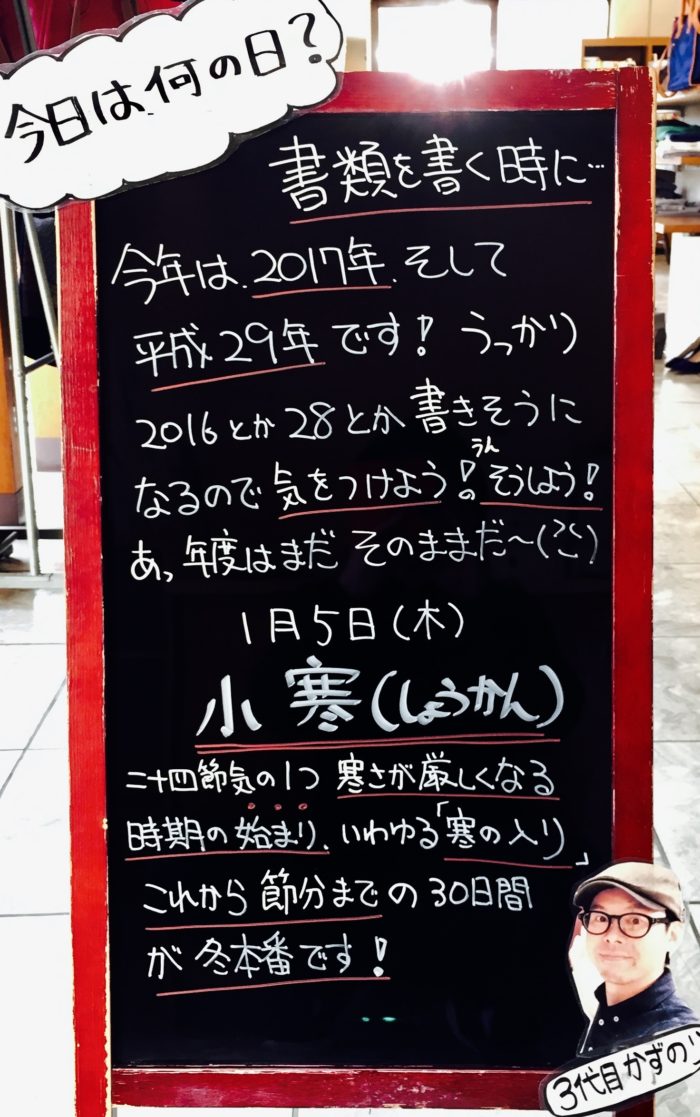 今日は何の日?
書類を書く時に…
今年は、2017年、そして
平成29年です! うっかり
2016とか28とか書きそうに
うん
なるので気をつけよう! そうしよう!
あっ、年度はまだ そのままだ〜
1月5日(木)
小寒(しょうかん)
二十四節気の1つ 寒さが厳しくなる
時期の始まり、いわゆる「寒の入り」
これから節分までの30日間
が冬本番です!
3代目かずのり